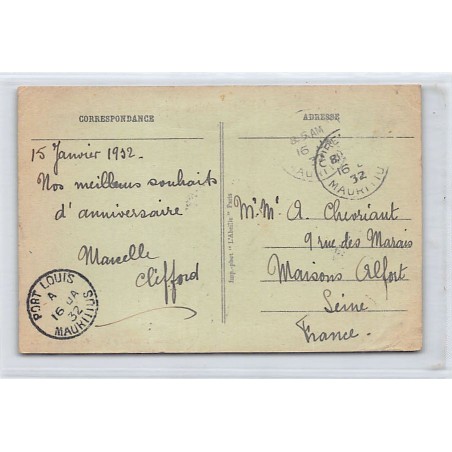 CORRESPONDANCE
15 Janvier 1932.
Nos meilleurs souhaits
d'anniversaire
Marcelle
Clifford
PORT LOUIS
A
16 JA
32
MAURITIUS
Imp.-phot "L'Abeille" Paris
ADRESSE
16
8
16
32
MAURITIU
M. Mme A. Chevriant
9 rue des Marais
Maisons Alfort
Seine
France.